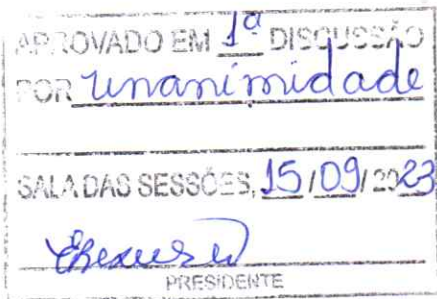 APROVADO EM 1ª DISCUSSÃO
POR unanimidade
SALA DAS SESSÕES, 15/09/2023
PRESIDENTE